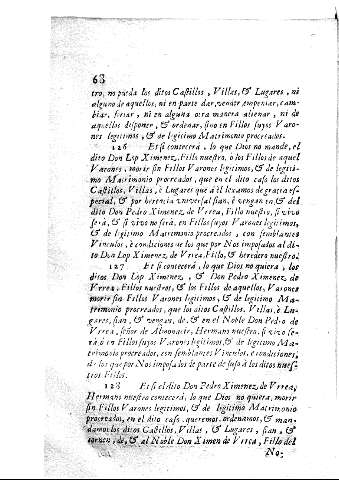 68
tro, ni pueda los ditos Castillos, Villas, & Lugares, ni
alguno de aquellos, ni en parte dar, vender, empeñar, cam-
biar, feriar, ni en alguna otra manera alienar, ni de
aquellos disponer, & ordenar, sino en Fillos suyos Varo-
nes legitimos, & de legitimo Matrimonio procreados.
126 Et si contecerá, lo que Dios no mande, el
dito Don Lop Ximenez, Fillo nuestro, o los Fillos de aquel
Varones, morir sin Fillos Varones legitimos, & de legiti-
mo Matrimonio procreados, que en el dito caso los ditos
Castillos, Villas, è Lugares que à èl lexamos de gracia es-
pecial, & por herencia universal sian, è vengan en & del
dito Don Pedro Ximenez, de Vrrea, Fillo nuestro, si vivo
será, & si vivo no será, en Fillos suyos Varones legitimos,
& de legitimo Matrimonio procreados, con semblantes
Vinculos, è condiciones de los que por Nos imposados al di-
to Don Lop Ximenez de Vrrea, Fillo, & heredero nuestro.
127 Et si contecerá, lo que Dios no quiera, los
ditos Don Lop Ximenez, & Don Pedro Ximenez de
Vrrea, Fillos nuestros, & los Fillos de aquellos, Varones
morir sin Fillos Varones legitimos, & de legitimo Ma-
trimonio procreados, que los ditos Castillos, Villas, è Lu-
gares, sian, & vengan, de, & en el Noble Don Pedro de
Vrrea, señor de Almonacir, Hermano nuestro, si vivo se-
rá, ò en Fillos suyos Varones legitimos, & de legitimo Ma-
trimonio procreados, con semblantes Vinculos, è condiciones,
de los que por Nos imposados de parte de suso à los ditos nues-
tros Fillos.
128 Et si el dito Don Pedro Ximenez, de Vrrea,
Hermano nuestro contecerá, lo que Dios no quiera, morir
sin Fillos Varones legitimos, & de legitimo Matrimonio
procreados, en el dito caso queremos, ordenamos, & man-
damos los ditos Castillos, Villas, & Lugares, sian, &
tornen, de, & al Noble Don Ximen de Vrrea, Fillo del
No-